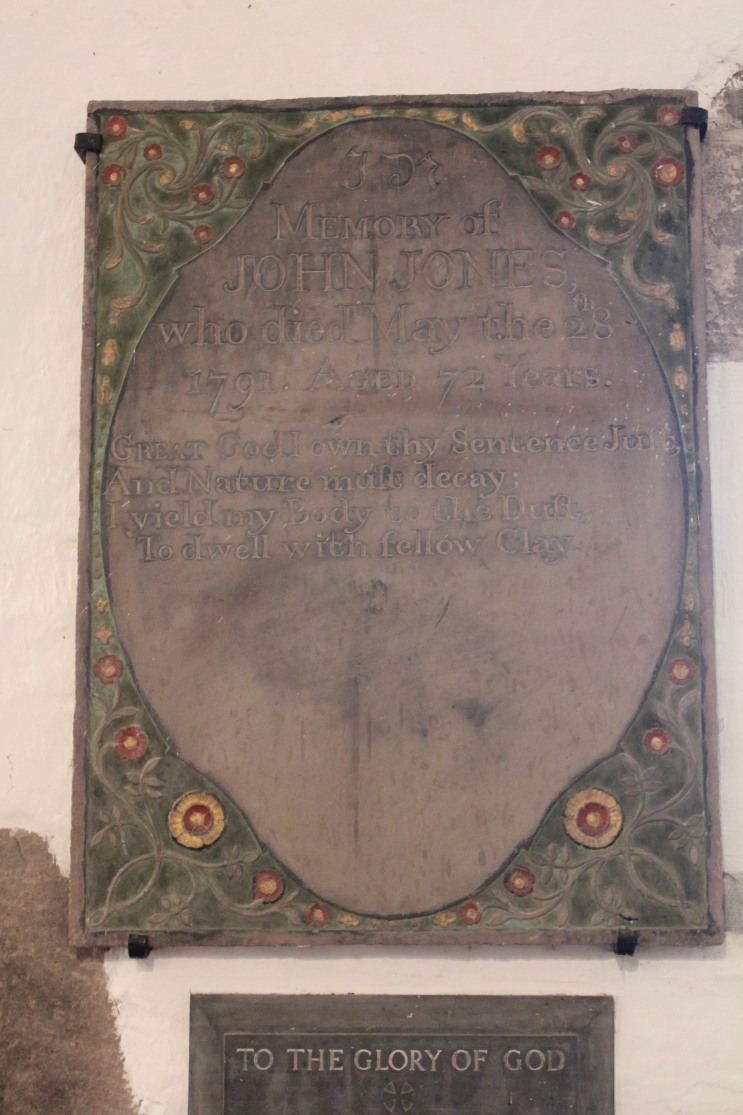 In
MEMORY of
JOHN JONES,
who died May the 28th
1791. AGED 72 Years.
GREAT God I own thy Sentence Juſt,
And Nature muſt decay:
I yield my Body to the Duſt,
To dwell with fellow Clay.
TO THE GLORY OF GOD